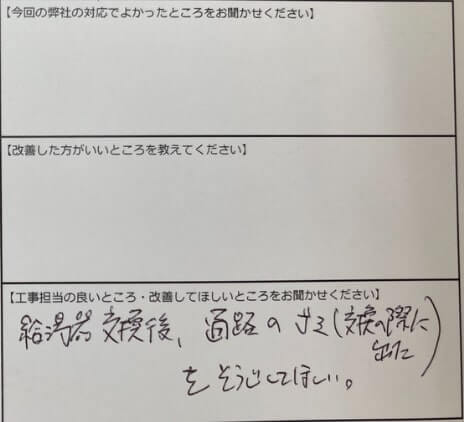 【今回の弊社の対応でよかったところをお聞かせください】
【改善した方がいいところを教えてください】
【工事担当の良いところ・改善してほしいところをお聞かせください】
給湯器交換後、通路のゴミ(交換の際に
出た)
をそうじしてほしい。